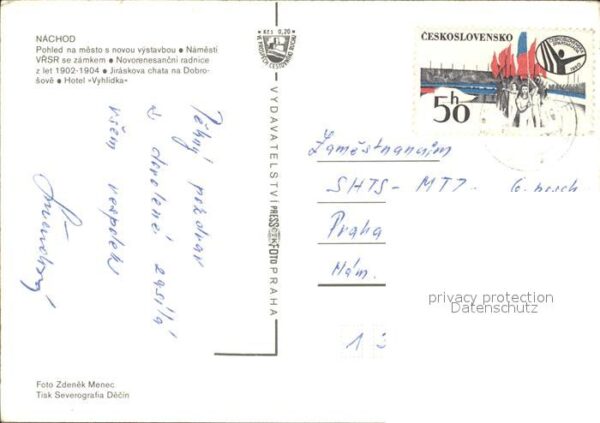 NÁCHOD
Pohled na město s novou výstavbou ● Náměstí
VŘSR se zámkem ● Novorenesanční radnice
z let 1902-1904 ● Jiráskova chata na Dobro-
šově ● Hotel »Vyhlídka«
Kčs 0,20
ČESKOSLOVENSKO
50 h
VYDAVATELSTVÍ PRESSFOTO PRAHA
Pěkný pozdrav
z dovolené zasílá
všem vespolek
Zaměstnancům
SHTS - MTZ
Praha
Nám.
1
privacy protection
Datenschutz
Foto Zdeněk Menec
Tisk Severografia Děčín